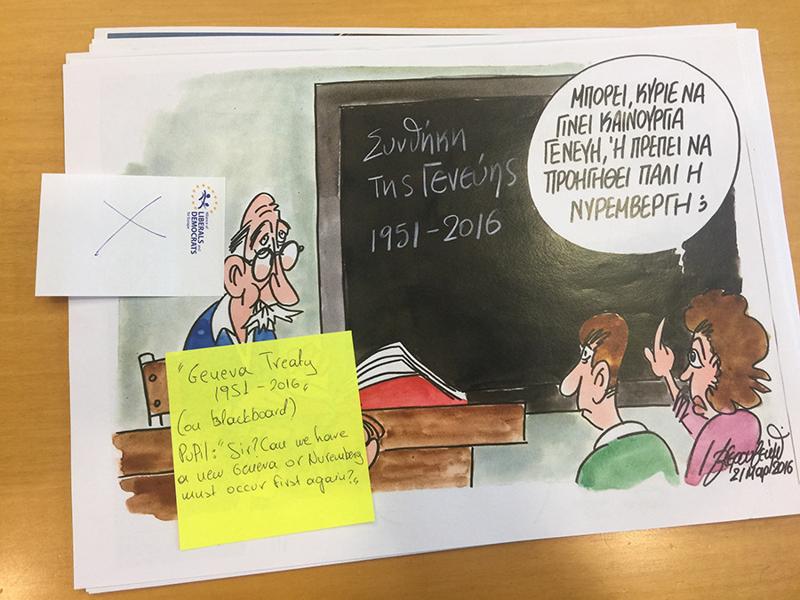 Συνθήκη
της Γενεύης
1951-2016
ΜΠΟΡΕΙ, ΚΥΡΙΕ ΝΑ
ΓΙΝΕΙ ΚΑΙΝΟΥΡΓΙΑ
ΓΕΝΕΥΗ, Ή ΠΡΕΠΕΙ ΝΑ
ΠΡΟΗΓΗΘΕΙ ΠΑΛΙ Η
ΝΥΡΕΜΒΕΡΓΗ;
LIBERALS and
DEMOCRATS
for Europe
"Geneva Treaty
1951-2016"
(on blackboard)
PUPIL: "Sir? Can we have
a new Geneva or Nuremberg
must occur first again?"
21 Μαρτ 2016